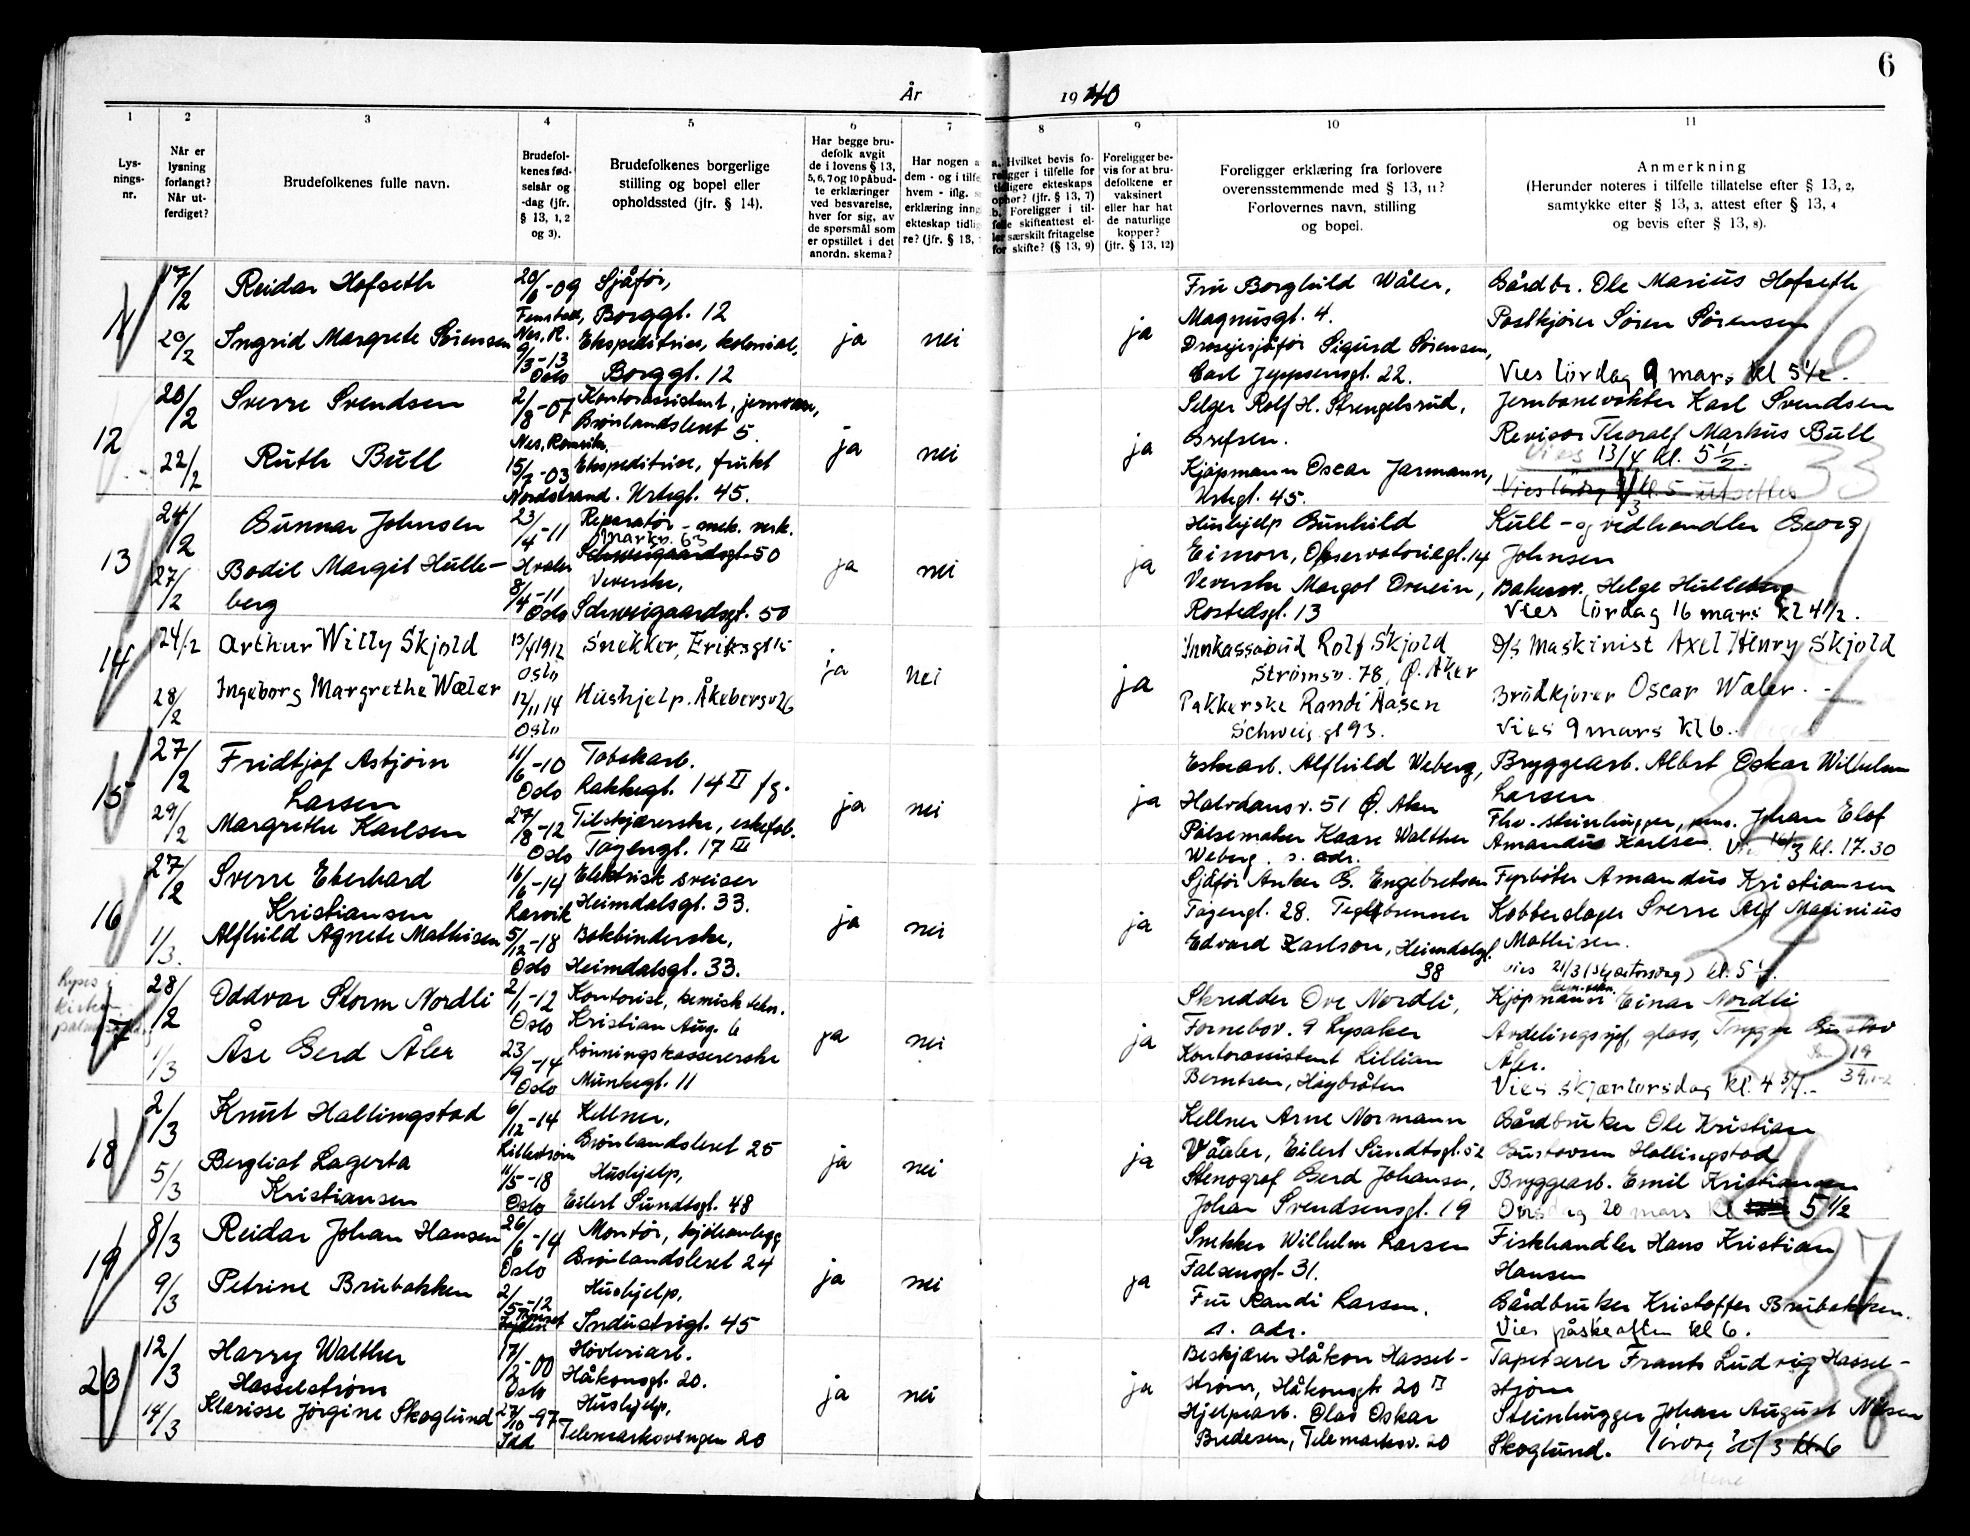 6
År 1940
1 2 3 4 5 6 7 8 9 10 11
Lys-
nings-
nr.
Når er
lysning
forlangt?
Når ut-
ferdiget?
Brudefolkenes fulle navn.
Brudefol-
kenes fød-
selsår og
-dag (jfr.
§ 13, 1, 2
og 3).
Brudefolkenes borgerlige
stilling og bopel eller
opholdssted (jfr. § 14).
Har begge bru-
defolk avgit
de i lovens § 13,
5, 6, 7 og 10 påbud-
te erklæringer
ved besvarelse,
hver for sig, av
de spørsmål som
er opstillet i det
anordn. skema?
Har nogen a
dem - og i tilfe
hvem - iflg.
erklæring inng
ekteskap tidlig
re? (jfr. § 13,
a. Hvilket bevis fo-
religger i tilfelle for
tidligere ekteskaps
ophør? (jfr. § 13, 7)
b. Foreligger i til-
felle skifteattest el-
ler særskilt fritagelse
for skifte? (§ 13, 9)
Foreligger be-
vis for at bru-
defolkene er
vaksinert
eller har hat
de naturlige
kopper?
(jfr. § 13, 12)
Foreligger erklæring fra forlovere
overensstemmende med § 13, 11?
Forlovernes navn, stilling
og bopel.
Anmerkning
(Herunder noteres i tilfelle tillatelse efter § 13, 2,
samtykke efter § 13, 3, attest efter § 13, 4
og bevis efter § 13, 8).
11
17/2 Reidar Hofseth 20/6-09 Sjåfør,
Fenstad, Borggt. 12
Nes, R.
20/2 Ingrid Margrete Sørensen 9/3-13 Ekspeditrise, kolonial,
Oslo Borggt. 12
ja nei ja
Fru Borghild Wåler,
Magnusgt. 4.
Drosjesjåfør Sigurd Sørensen,
Carl Jeppesensgt. 22.
Gårdbr. Ole Marius Hofseth
Postkjører Søren Sørensen
Vies lørdag 9 mars kl 5 1/2.
16
12
20/2 Sverre Svendsen 2/8-07 Kontorassistent, jernvare,
Grønlandsleret 5.
Nes, Romerike
22/2 Ruth Bull 15/7-03 Ekspeditrise, frukt
Nordstrand. Urtegt. 45.
ja nei ja
Selger Rolf H. Strengelsrud,
Grefsen.
Kjøpmann Oscar Jarmann,
Urtegt. 45.
Jernbanevokter Karl Svendsen
Revisor Thoralf Markus Bull
Vies 13/4 kl. 5 1/2.
33
13
24/2 Gunnar Johnsen 23/4-11 Reparatør - mek. verk.
Markv. 63
Hvaler Schweigaardsgt. 50
27/2 Bodil Margit Hulle-
berg 8/4-11 Veverske,
Oslo Schweigaardsgt. 50
ja nei ja
Hushjelp Gunhild
Eimon, Observatoriegt. 14
Veverske Margot
Rostedsgt. 13
Kull- og vedhandler Georg
Johnsen
Helge Hulleberg
Vies lørdag 16 mars kl 4 1/2.
21
14
24/2 Arthur Willy Skjold 13/4 1912 Snekker, Eriksgt 15
Oslo
28/2 Ingeborg Margrethe Wæler 12/11 14 Hushjelp. Åkebergv 26
Oslo
ja nei ja
Innkassobud Rolf Skjold
Strømsv. 78, Ø. Aker
Pakkerske Randi Aasen
Schweig.gt 93.
D/s Maskinist Axel Henry Skjold
Brødkjører Oscar Wæler.
Vies 9 mars kl 6.
17
15
27/2 Fridtjof Asbjørn
Larsen 11/6-10 Tobakarb.
Oslo Rakkegt. 14 II fg.
29/2 Margrethe Karlsen 27/8-12 Tilskjærerske, eskefab.
Oslo Tøyengt. 17 III
ja nei ja
Eskearb. Alfhild Weberg,
Halvdansv. 51 Ø. Aker
Pølsemaker Kaare Walther
Weberg. s. adr.
Bryggearb. Albert Oskar Wilhelm
Larsen
Fhv. steinhugger, Johan Elof
Amandus Karlsen. Vies 16/3 kl. 17.30
22
16
27/2 Sverre Eberhard
Kristiansen 16/6-14 Elektrisk sveiser
Larvik Heimdalsgt. 33.
1/3. Alfhild Agnete Mathisen 5/12-18 Bokbinderske,
Oslo Heimdalsgt. 33.
ja nei ja
Sjåfør Anker G. Engebretsen
Tøyengt. 28. Teglbrenner
Edvard Karlson, Heimdalsgt.
38
Fyrbøter Amandus Kristiansen
Kobberslager Sverre Alf Marinius
Mathisen.
Vies 21/3 (Skjærtorsdag) kl. 5 1/2.
24
Lyses i
kirken
17
28/2 Oddvar Storm Nordli 2/1-12 Kontorist, kemisk tekn.
Oslo Kristian Aug. 6
1/3 Åse Gerd Åler 23/9-14 Lønningskassererske
Oslo Munkegt. 11
ja nei ja
Skredder Ove Nordli,
Fornebov. 9 Lysaker
Kontorassistent Lillian
Berntsen, Høybråten
Kjøpmann Einar Nordli
Avdelingssjef, glass, Trygve Gustav
Åler.
Vies skjærtorsdag kl. 4 3/4.
25
18
2/3 Knut Hallingstad 6/12-14 Kellner,
Lillestrøm Grønlandsleret 25
5/3 Bergliot Lagerta
Kristiansen 11/5-18 Hushjelp,
Oslo Eilert Sundtsgt. 48
ja nei ja
Kellner Arne Normann
Våler, Eilert Sundtsgt. 52
Stenograf Gerd Johansen,
Johan Svendsensgt. 19
Gårdbruker Ole Kristian
Gustavsen Hallingstad
Bryggearb. Emil Kristiansen
Onsdag 20 mars kl 5 1/2
26
19
8/3 Reidar Johan Hansen 26/6-14 Montør, kjøleanlegg
Oslo Grønlandsleret 24
9/3 Petrine Brubakken 2/5-12 Hushjelp,
Industrigt. 45
ja nei ja
Snekker Wilhelm Larsen
Falsensgt. 31.
Fru Randi Larsen.
s. adr.
Fiskhandler Hans Kristian
Hansen
Gårdbruker Kristoffer Brubakken.
Vies påskeaften kl 6.
27
20
12/3 Harry Walther
Hasselstrøm 17/2-00 Høvleriarb.
Oslo Håkonsgt. 20.
14/3 Klarisse Jørgine Skoglund 27/10-97 Hushjelp,
Idd Telemarksvingen 20
ja nei ja
Beskjærer Håkon Hassel-
strøm, Håkonsgt. 20 II
Hjelpearb. Olav Oskar
Bredesen, Telemarksv. 20
Tapetserer Frants Ludvig Hassel-
strøm
Steinhugger Johan August Nilsen
Skoglund. lørdag 30/3 kl. 6
28